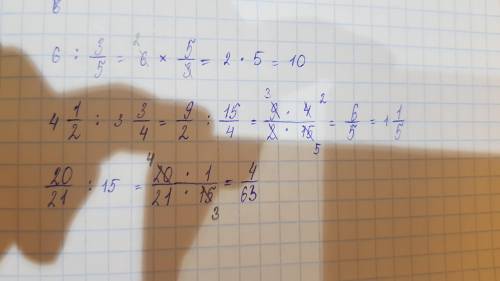 6 : 3/5 = 6 × 5/3 = 2 · 5 = 10
4 1/2 : 3 3/4 = 9/2 : 15/4 = 9 · 4/2 · 15 = 6/5 = 1 1/5
20/21 : 15 = 20 · 1/21 · 15 = 4/63